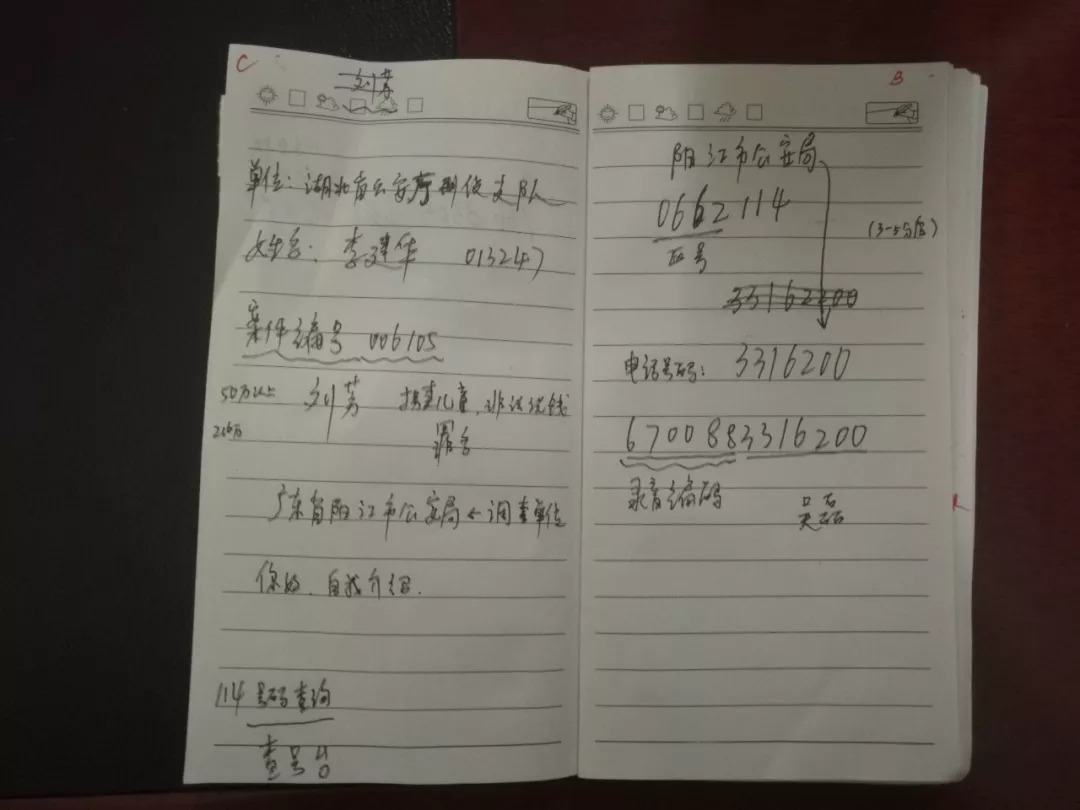 C
刘芳
单位：湖北省公安厅刑侦支队
姓名：李建华 013247
案件编号 006105
50万以上 刘芳 拐卖儿童，非法洗钱
216万
广东省阳江市公安局←调查单位
你好，自我介绍.
114号码查询
查号台
B
阳江市公安局
0662114
(3-5分钟)
区号
33162200
电话号码：3316200
6700883316200
录音编码 吴磊